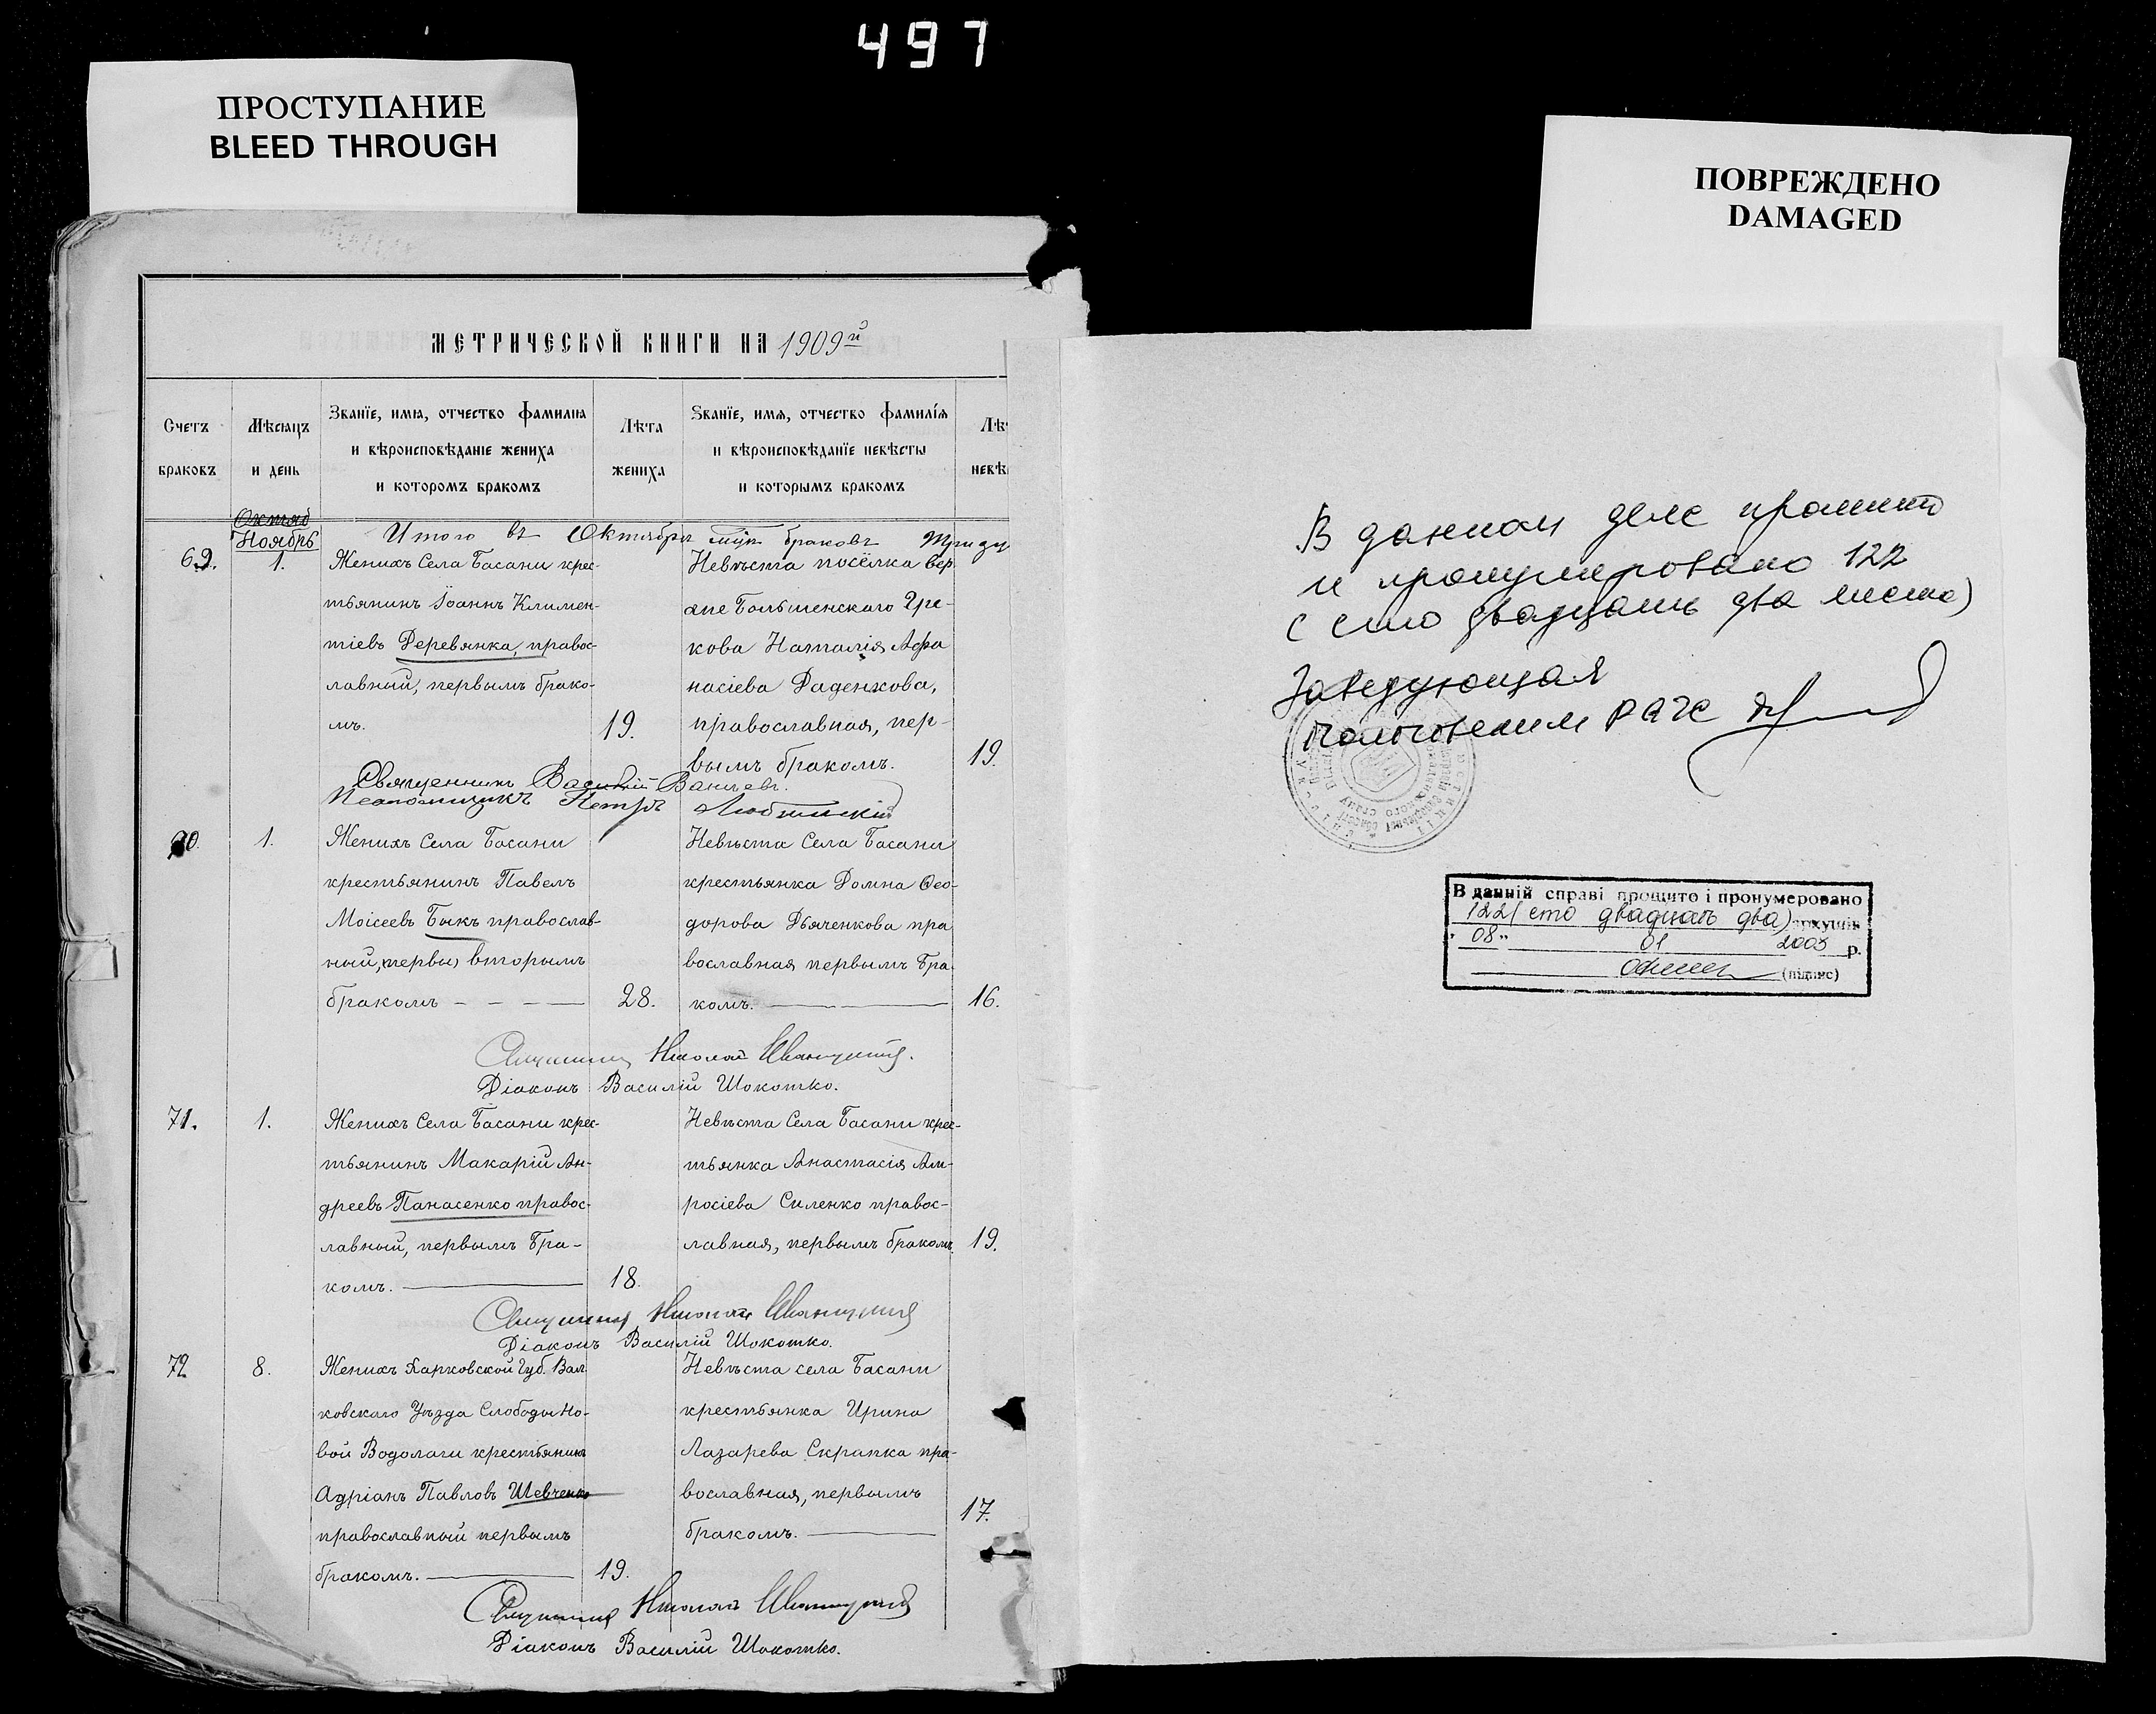 497
ПРОСТУПАНИЕ
BLEED THROUGH
ПОВРЕЖДЕНО
DAMAGED
МЕТРИЧЕСКОЙ КНИГИ НА 1909й
Счетъ браковъ
Мѣсяцъ и день
Званїе, имя, отчество фамилїя
и вѣроисповѣданїе жениха
и которомъ бракомъ
Лѣта жениха
Званїе, имя, отчество фамилїя
и вѣроисповѣданїе невѣсты
и которымъ бракомъ
Октяб
Ноябрь
Итого въ Октябрѣ браковъ
69.
1.
Женихъ Села Басани крес-
тьянинъ Іоаннъ Климен-
тіевъ Деревянка, правос-
лавный, первымъ брако-
мъ.
19.
Невѣста посёлка Вер
Гре-
кова Наталія Афа
насіева Даденкова,
православная, пер-
вымъ бракомъ.
19.
Священникъ Василій
Псаломщикъ Петръ Любитскій
70.
1.
Женихъ Села Басани
крестьянинъ Павелъ
Моісеевъ Быкъ православ-
ный, первы вторымъ
бракомъ
28.
Невѣста Села Басани
крестьянка Домна Ѳео-
дорова Дьяченкова пра
вославная первымъ бра-
комъ.
16.
Священникъ Николай
Діаконъ Василій Шокотко.
71.
1.
Женихъ Села Басани крес-
тьянинъ Макарій Ан-
дреевъ Панасенко правос-
лавный, первымъ бра-
комъ.
18.
Невѣста Села Басани крес-
тьянка Анастасія Ам-
росіева Силенко правос-
лавная, первымъ бракомъ.
19.
Священникъ Николай
Діаконъ Василій Шокотко.
72
8.
Женихъ Харковской Губ. Вал
ковскаго Уѣзда Слободы Но-
вой Водолаги крестьянинъ
Адріанъ Павловъ Шевченко
православный первымъ
бракомъ.
19.
Невѣста села Басани
крестьянка Ирина
Лазарева Скрапка пра-
вославная, первымъ
бракомъ.
17.
Священникъ Николай
Діаконъ Василій Шокотко.
В данном деле прошито
и пронумеровано 122
(сто двадцать два листа)
Заведующая
Пологовским РАГС
В данній справі прощито і пронумеровано
122 (сто двадцать два) аркушів
"08" 01 2003 р.
(підпис)